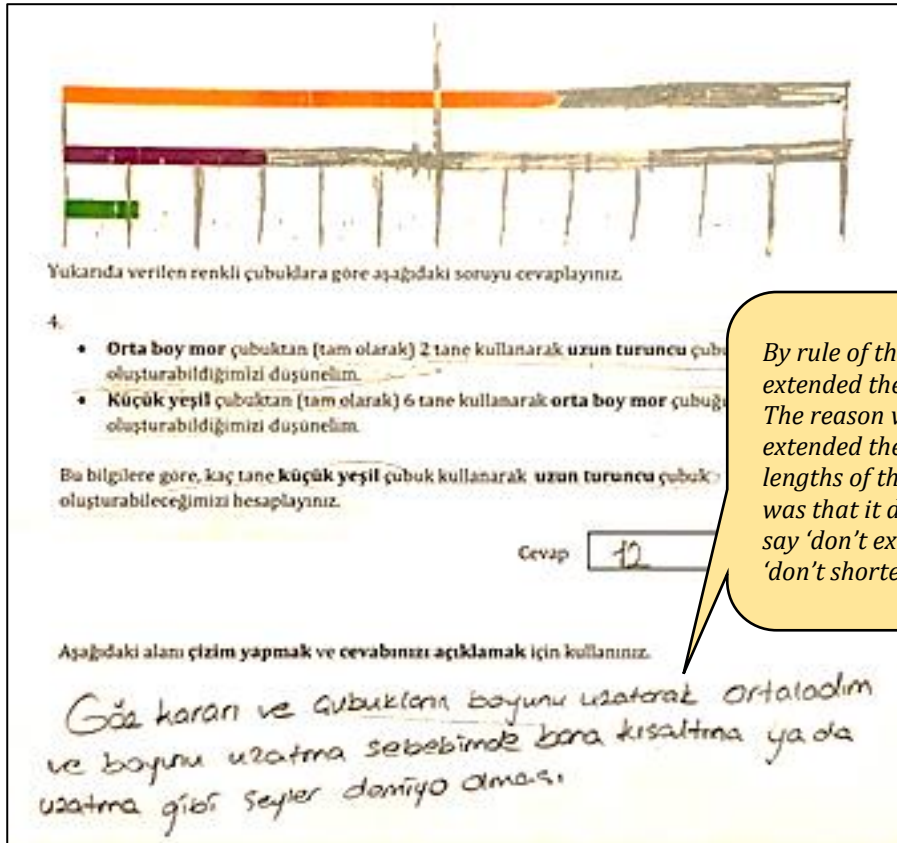 Yukarıda verilen renkli çubuklara göre aşağıdaki soruyu cevaplayınız.
4.
• Orta boy mor çubuktan (tam olarak) 2 tane kullanarak uzun turuncu çubu
oluşturabildiğimizi düşünelim.
• Küçük yeşil çubuktan (tam olarak) 6 tane kullanarak orta boy mor çubuğu
oluşturabildiğimizi düşünelim
Bu bilgilere göre, kaç tane küçük yeşil çubuk kullanarak uzun turuncu çubuk
oluşturabileceğimizi hesaplayınız.
Cevap 12
By rule of th
extended the
The reason w
extended the
lengths of th
was that it d
say ‘don’t ex
‘don’t shorte
Aşağıdaki alanı çizim yapmak ve cevabınızı açıklamak için kullanınız.
Göz kararı ve çubukların boyunu uzatarak ortaladım
ve boyunu uzatma sebebimde bana kısaltma ya da
uzatma gibi şeyler demiyo olması